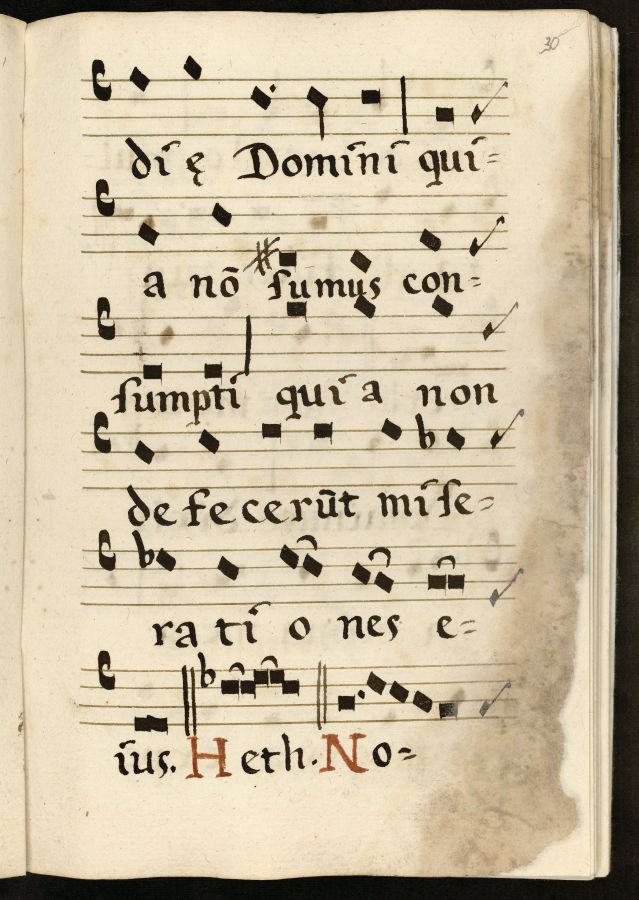 30
di ę Domini qui=
a nō sumus con=
sumpti qui a non
defecerūt mise=
rati o nes e=
ius. Heth. No=